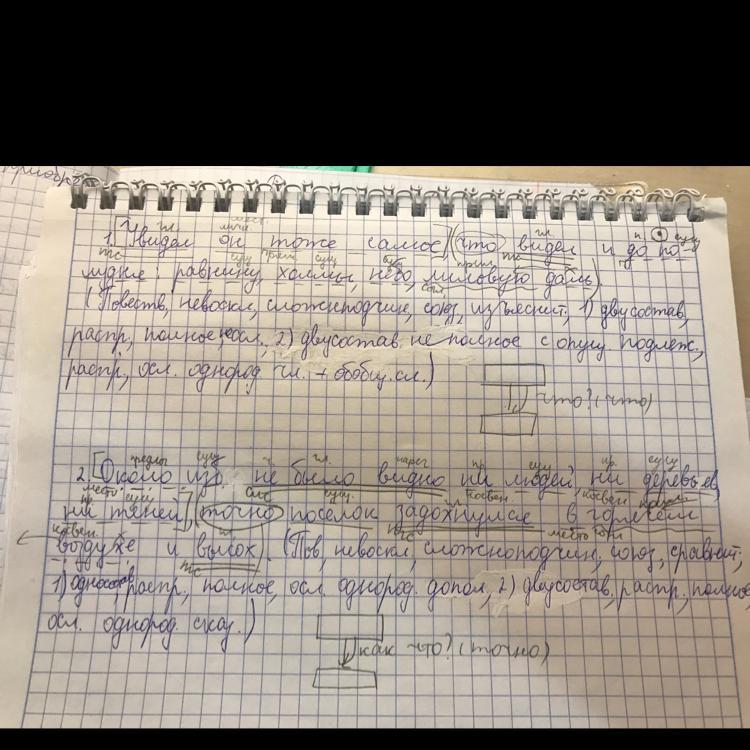 1. [Увидел он тоже самое], (что видел и до по-
лудня: равнину, холмы, небо, лиловую даль)
(Повеств, невоскл, сложноподчин, союз, изъяснит; 1) двусостав,
распр, полное, 2) двусостав не полное с опущ. подлеж,
распр, осл. однород чл. + обобщ. сл.)
что? (что)
2. [Около изб не было видно ни людей, ни деревьев,
ни теней], (точно поселок задохнулся в горячем
воздухе и высох). (Пов, невоскл, сложноподчин, союз, сравнит;
1) односостав распр, полное, осл. однород. допол, 2) двусостав, распр, полное
осл. однород. сказ.)
как что? (точно)